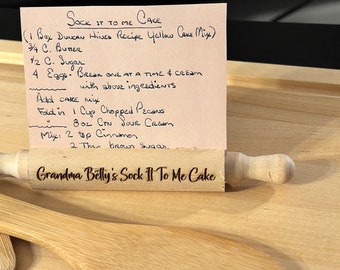 Sock it to me Cake
(1 Box Duncan Hines Recipe Yellow Cake Mix)
3/4 C. Butter
1/2 C. Sugar
4 Eggs - Break one at a time & cream
with above ingredients
Add cake mix
Fold in 1 Cup Chopped Pecans
8 oz Ctn Sour Cream
Mix: 2 tsp Cinnamon
2 Tbsp brown sugar
Grandma Betty's Sock It To Me Cake